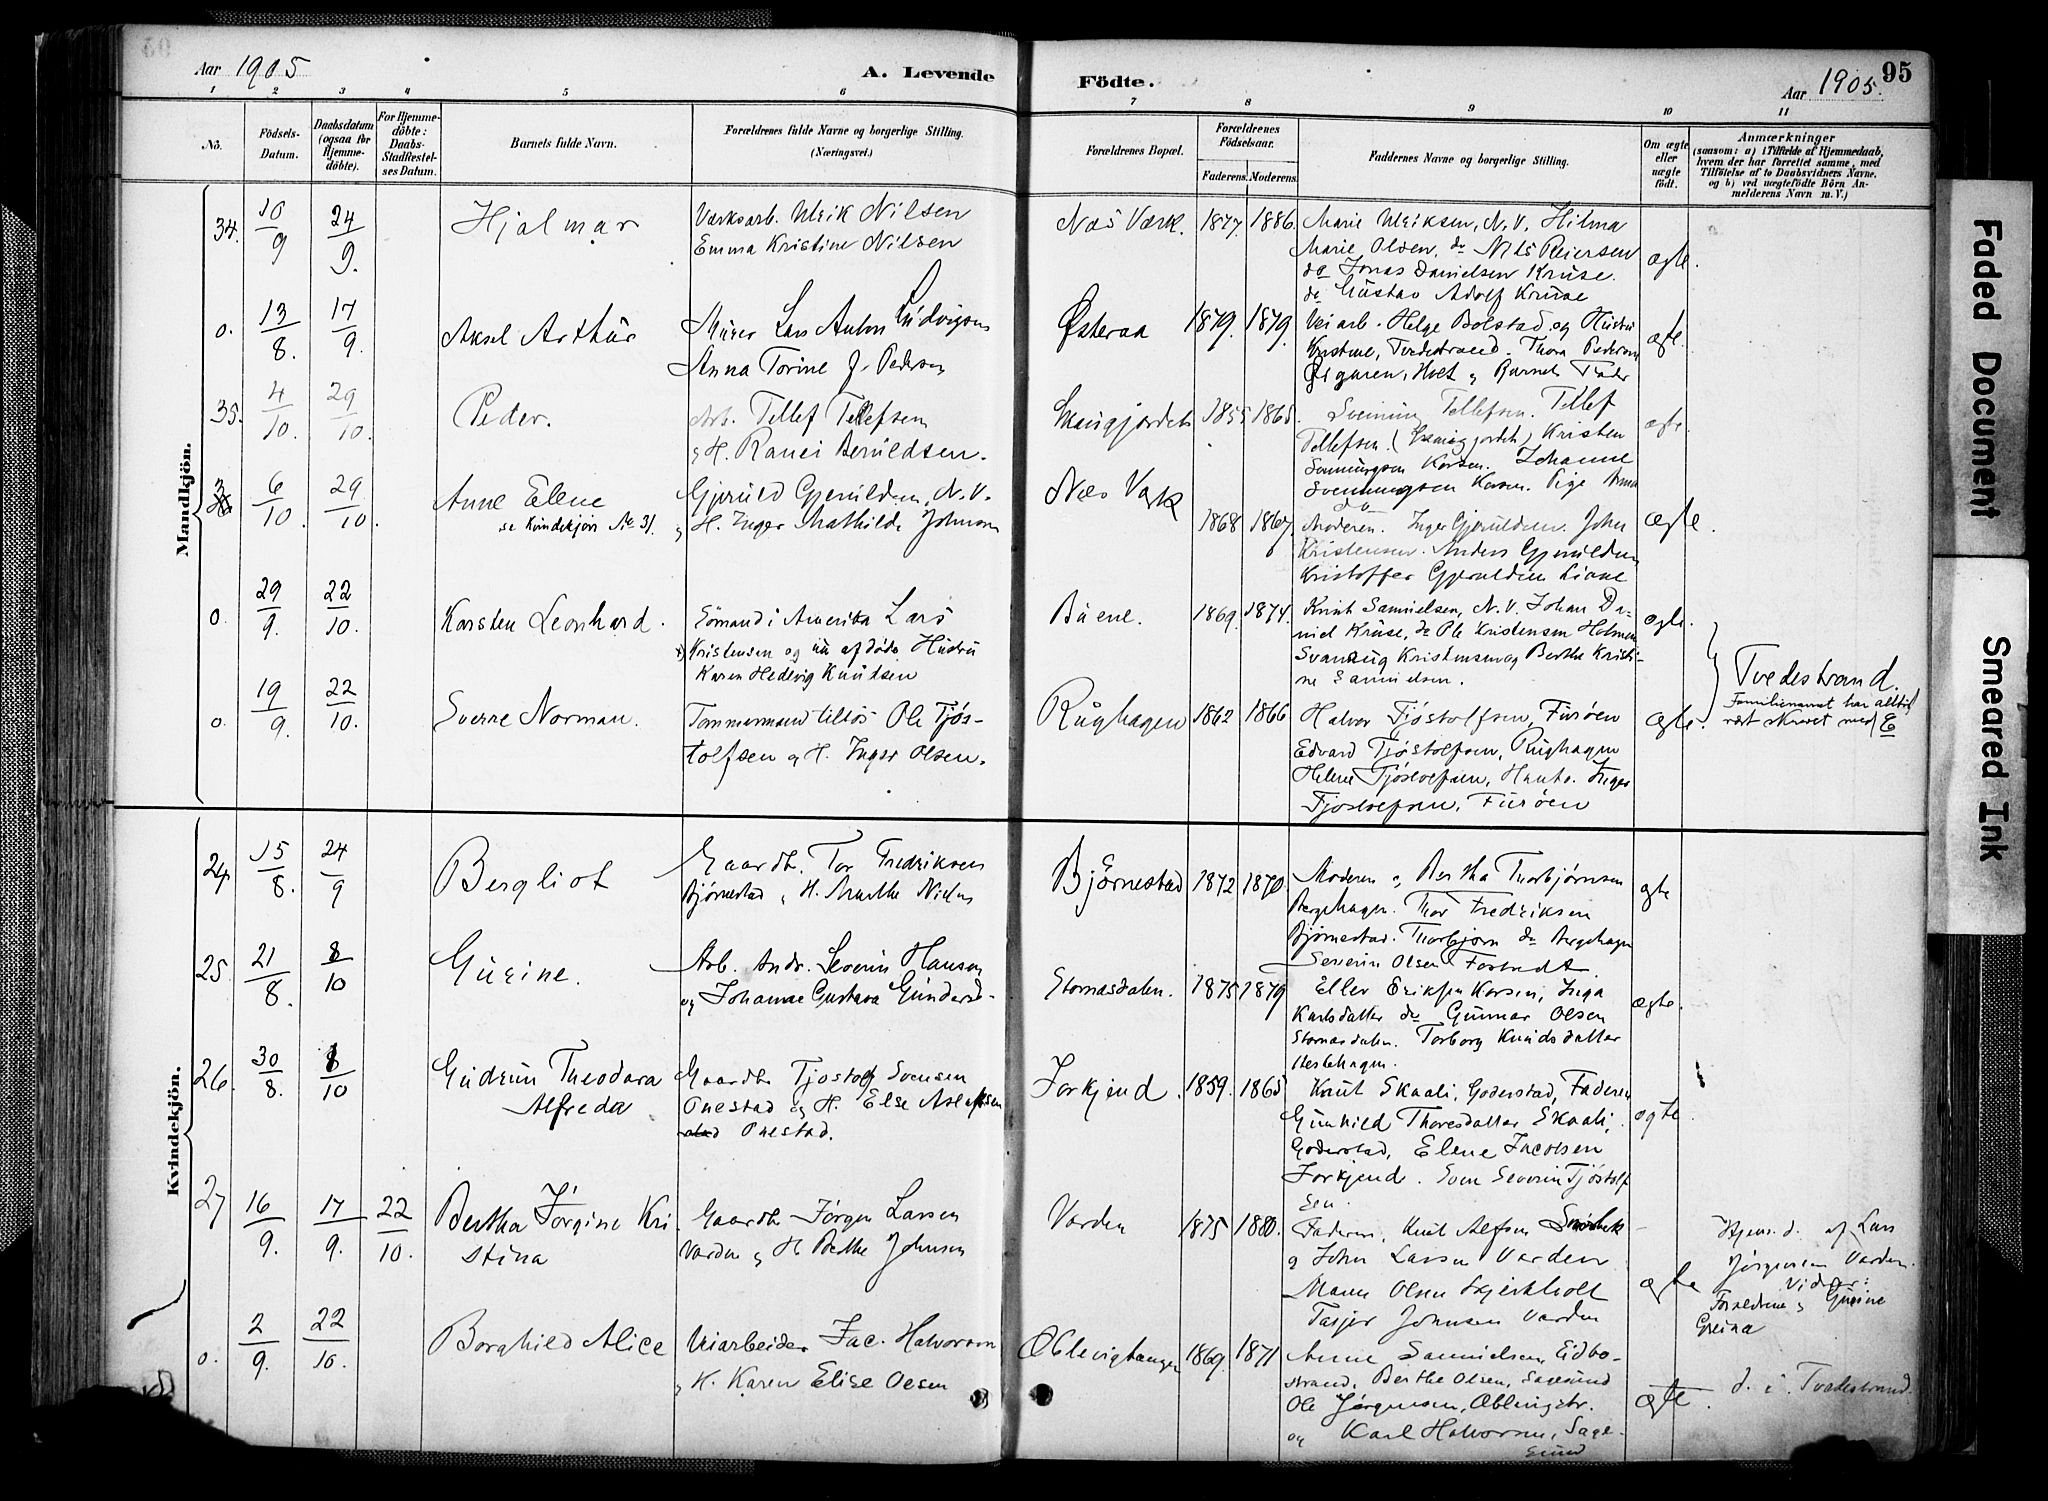 Aar 1905
A. Levende
Födte.
Aar 1905.
95
1 2 3 4 5 6 7 8 9 10 11
No.
Födsels-
Datum.
Daabsdatum
(ogsaa for
Hjemme-
döbte).
For Hjemme-
döbte:
Daabs-
Stadfæstel-
ses Datum.
Barnets fulde Navn.
Forældrenes fulde Navne og borgerlige Stilling.
(Næringsvei.)
Forældrenes Bopæl.
Forældrenes
Födselsaar.
Faderens. Moderens.
Faddernes Navne og borgerlige Stilling.
Om ægte
eller
uægte
födt.
Anmærkninger
(saasom: a) i Tilfælde af Hjemmedaab,
hvem der har forrettet samme, med
Tilföielse af to Daabsvidners Navne,
og b) ved uægtefödte Börn An-
melderens Navn m.V.)
Mandkjön.
34. 10/9 24/9. Hjalmar
Værksarb. Ulrik Nilsen
Emma Kristine Nilsen
Næs Værk. 1877 1886.
Marie Ulriksen, N.V. Hilma
Marie Olsen, do Nils Reiersen
do Jonas Danielsen Kruse.
do Gustav Adolf Kruse
ægte.
o. 13/8. 17/9. Aksel Arthur
Murer Lars Anton Ludvigsen
Anna Torine J. Pedersen
Østeraa 1879. 1879.
Veiarb. Helge Bolstad og Hustru
Kristine, Tvedestrand. Thora Pedersen
Holt og Barnets Fader
ægte.
35. 4/10. 29/10. Peder.
Arb. Tellef Tellefsen
og H. Ranei Beruldsen.
1855 1865.
Tellefsen. Tellef
Tellefsen. Kristen
Svenningsen Korsen. Johanne
Svenningsen Korsen. Pige Anna
do
ægte.
6/10. 29/10. Anne Elene
se Kvindekjön No 31.
Gjeruld Gjeruldsen, N.V.
og H. Inger Mathilde Johnsen
Næs Værk
1868 1867.
Moderen. Inger Gjeruldsen. John
Kristensen. Anders Gjeruldsen
Kristoffer Gjeruldsen Liane
ægte.
o. 29/9. 22/10. Karsten Leonhard.
Sömand i Amerika Lars
Kristensen og nu afdöde Hustru
Karen Hedevig Knudsen
Buene. 1869. 1874.
Knut Samuelsen, N.V. Johan Da-
niel Kruse, do Ole Kristensen Holmen
Svanaug Kristensen og Berthe Kristi-
ne Samuelsen.
ægte.
o. 19/9. 22/10. Sverre Norman.
Tømmermand tillös Ole Tjøs-
tolfsen og H. Inger Olsen.
Rughagen 1862 1866
Halvor Tjøstolfsen, Furöen
Edvard Tjøstolfsen, Rughagen
Helene Tjøstolfsen, Inger
Tjøstolfsen, Furöen
ægte.
Tvedestrand.
Familienavnet har altid
vært skrevet med E
Kvindekjön.
24 15/8. 24/9 Bergliot
Gaardbr. Tor Fredriksen
Bjørnestad og H. Marthe Niels
Björnestad 1872 1870.
Moderen og Bertha Thorbjørnsen
Bergehagen. Thor Fredriksen
Bjørnestad. Thorbjørn do Bergehagen
Severin Olsen Fostvedt.
ægte
25. 21/8. 8/10 Gurine.
Arb. Andr. Severin Hansen
og Johanne Gustava Gundersd-
Stornæsdalen. 1875 1879
Ellef Eriksen Korsen, Inga
Karlsdatter do Gunnar Olsen
Stornæsdalen. Torborg Knudsdatter
ægte.
26. 30/8. 8/10 Gudrun Theodora
Alfreda
Gaardbr. Tjostolf Svensen
Onestad og H. Else Aslaksen
Onestad.
Forkjend. 1859. 1865
Knut Skaali, Goderstad, Faderen
Gunhild Thoresdatter Skaali,
Goderstad, Elene Jacobsen
Forkjend. Sven Severin Tjöstolf
sen.
ægte.
27 16/9. 17/9. 22/10. Bertha Jörgine Kri
stina
Gaardbr. Jörgen Larsen
Varden og H. Berthe Johnsen
Varden 1875 1880.
Faderen, Knut Alfsen
og John Larsen Varden
Maren Olsen Skjerkholt
Tarjer Johnsen Varden
ægte
Hjem. d. af Lars
Jørgensen Varden.
Vidner:
Forældrene og Gurine
o. 2/9. 22/10. Borghild Alice
Veiarbeider Jac. Halvorsen
og H. Karen Elise Olsen
1869. 1871
Anne Samuelsen, Eidbo-
strand, Berthe Olsen, Sagesund
Ole Jørgensen,
og Karl Halvorsen, Sage-
sund
ægte.
d. i Tvedestrand.
Faded Document
Smeared Ink